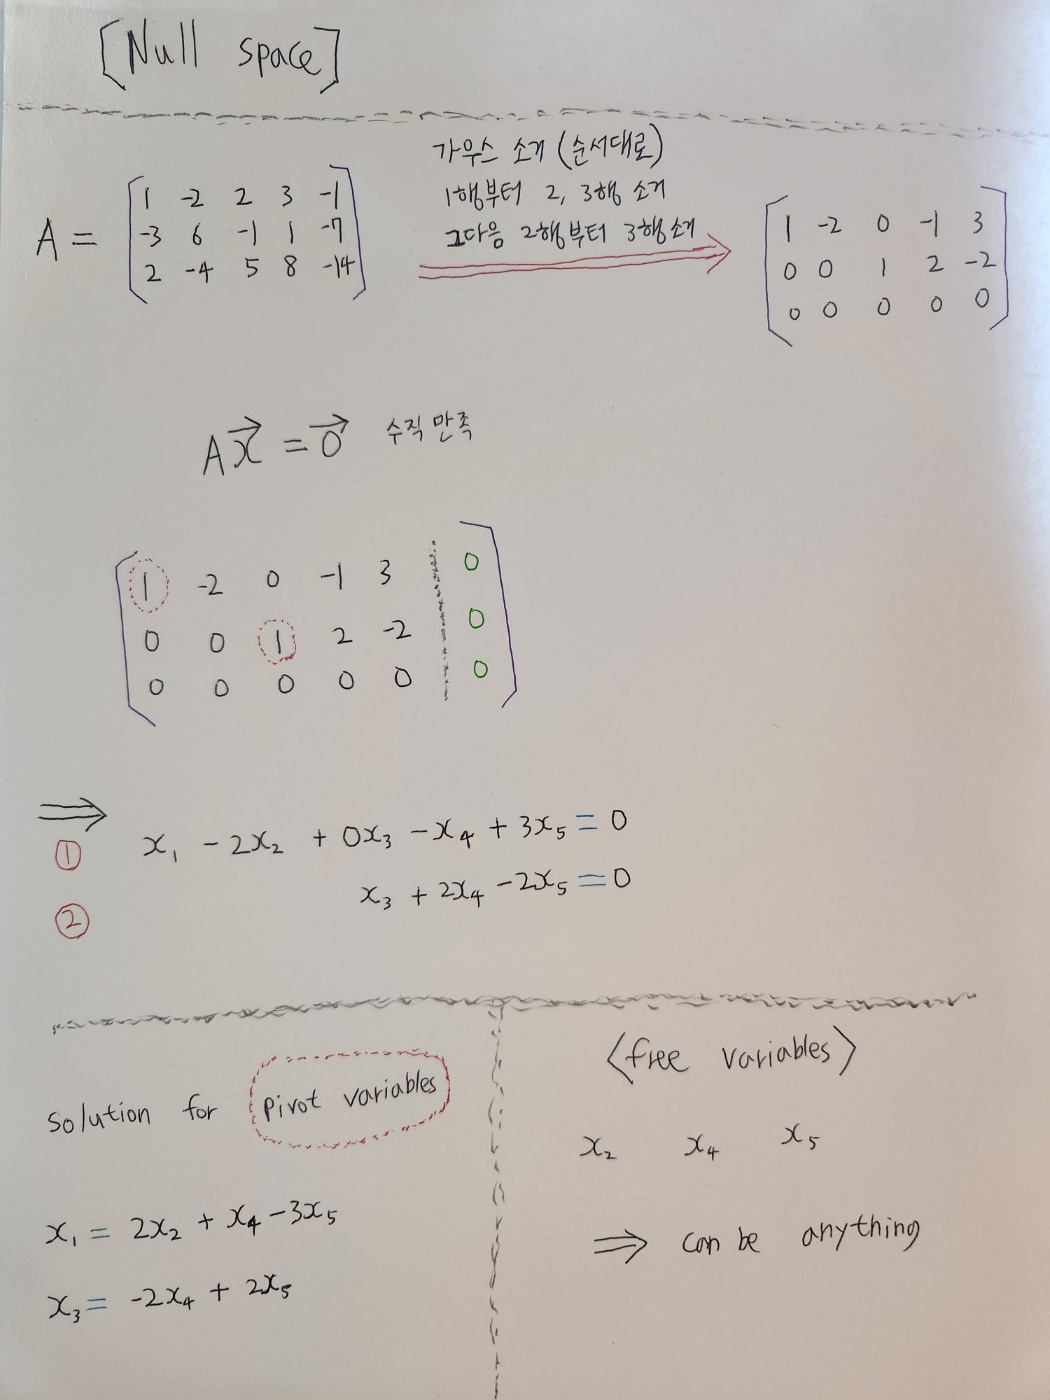 [Null space]
가우스 소거 (순서대로)
1행부터 2, 3행 소거
그다음 2행부터 3행 소거
A = [
1 -2 2 3 -1
-3 6 -1 1 -7
2 -4 5 8 -14
]
[
1 -2 0 -1 3
0 0 1 2 -2
0 0 0 0 0
]
Ax⃗ = 0⃗ 수직 만족
[
1 -2 0 -1 3 | 0
0 0 1 2 -2 | 0
0 0 0 0 0 | 0
]
⇒
① x₁ - 2x₂ + 0x₃ - x₄ + 3x₅ = 0
② x₃ + 2x₄ - 2x₅ = 0
solution for pivot variables
x₁ = 2x₂ + x₄ - 3x₅
x₃ = -2x₄ + 2x₅
<free variables>
x₂ x₄ x₅
⇒ can be anything